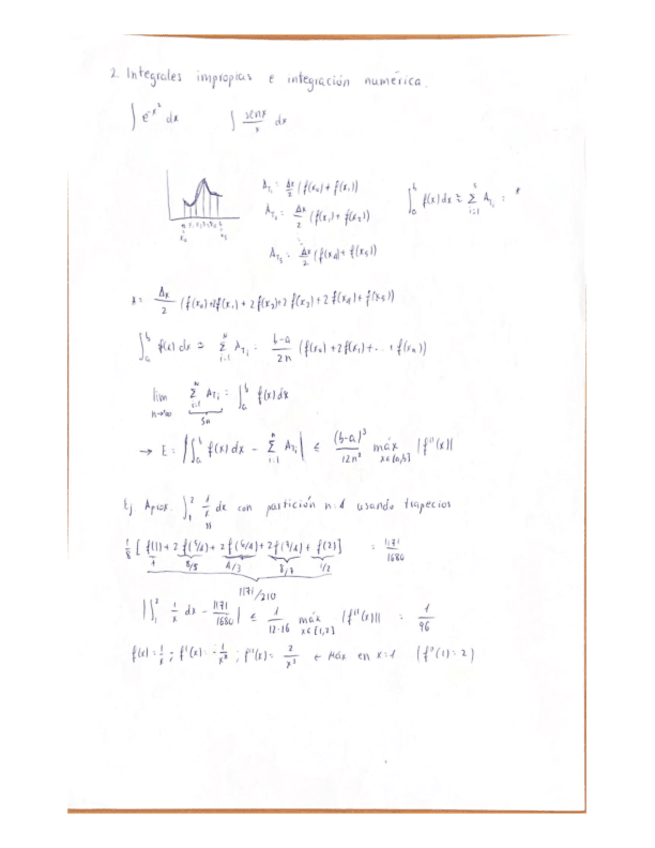 2. Integrales impropias e integración numérica.
∫ e^{-x²} dx ∫ senx/x dx
A_{T₁} = Δx/2 (f(x₀) + f(x₁))
A_{T₂} = Δx/2 (f(x₁) + f(x₂))
∫_a^b f(x) dx ≈ Σ_{i=1}^5 A_{Ti} = *
A_{T₅} = Δx/2 (f(x₄) + f(x₅))
* = Δx/2 (f(x₀) + 2f(x₁) + 2f(x₂) + 2f(x₃) + 2f(x₄) + f(x₅))
∫_a^b f(x) dx ≈ Σ_{i=1}^N A_{Ti} = b-a/2n (f(x₀) + 2f(x₁) + ... + f(x_n))
lim_{n→∞} Σ_{i=1}^N A_{Ti} = ∫_a^b f(x) dx
Sn
→ E = |∫_a^b f(x) dx - Σ_{i=1}^n A_{Ti}| ≤ (b-a)³/12n² máx_{x∈[a,b]} |f''(x)|
Ej. Aprox. ∫_1^2 1/x dx con partición n=4 usando trapecios
1/8 [f(1) + 2f(5/4) + 2f(6/4) + 2f(7/4) + f(2)] = 1171/1680
1 8/5 4/3 8/7 1/2
1171/210
|∫_1^2 1/x dx - 1171/1680| ≤ 1/12·16 máx_{x∈[1,2]} |f''(x)| = 1/96
f(x) = 1/x ; f'(x) = -1/x² ; f''(x) = 2/x³ ← Máx en x=1 (f''(1) = 2)